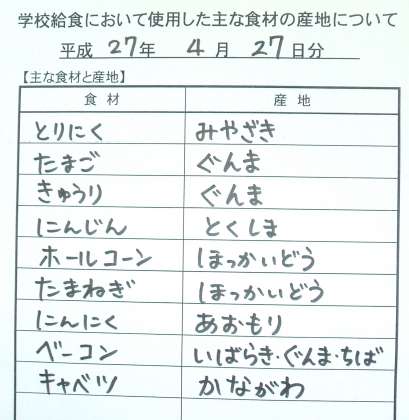 学校給食において使用した主な食材の産地について
平成 27年 4月 27日分
【主な食材と産地】
食材 産地
とりにく みやざき
たまご ぐんま
きゅうり ぐんま
にんじん とくしま
ホールコーン ほっかいどう
たまねぎ ほっかいどう
にんにく あおもり
ベーコン いばらき・ぐんま・ちば
キャベツ かながわ